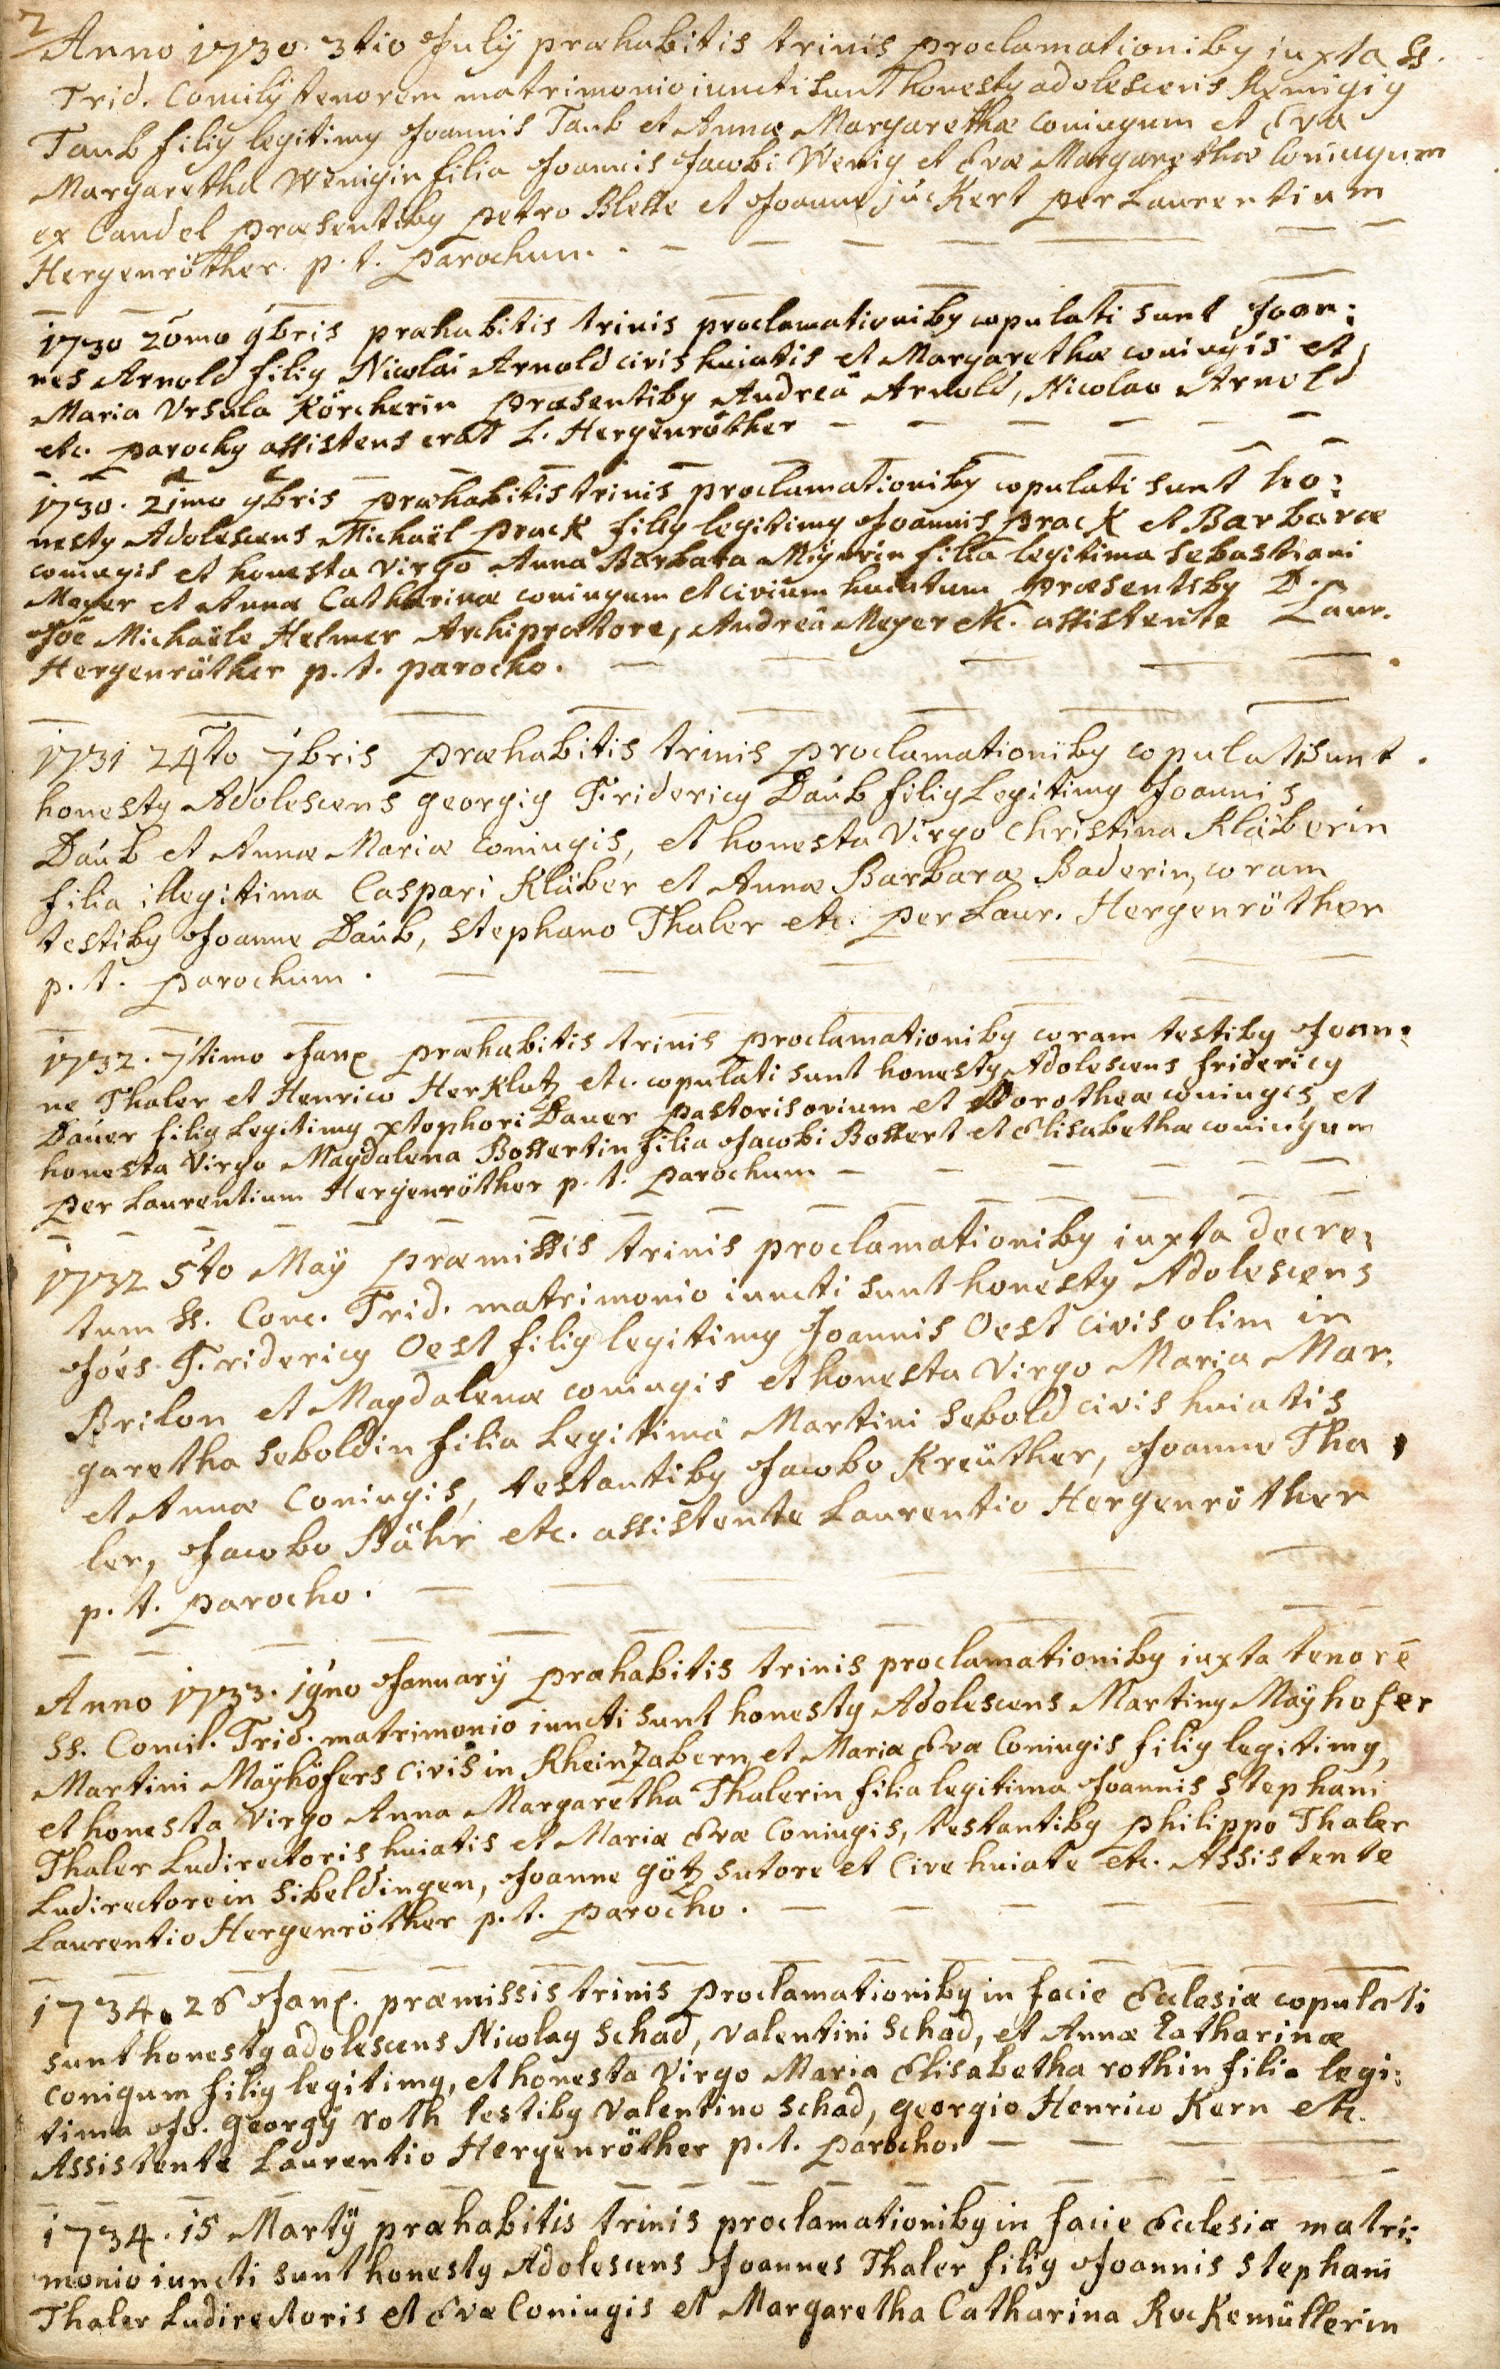 2
Anno 1730. 3tio July præhabitis trinis proclamationiby iuxta Ss.
Trid. Concilÿ tenorem matrimonio iuncti sunt honesty adolescens Remigiy
Taub filiy legitimy Joannis Taub et Annæ Margarethæ coniugum et Eva
Margaretha Wenigin filia Joannis Jacobi Wenig et Evæ Margarethæ Coniugum
ex Candel præsentiby petro Blette et Joanne juckert per Laurentium
Hergenröther p. t. parochum.
1730 20mo 9bris præhabitis trinis proclamationiby copulati sunt Joan:
nes Arnold filiy Nicolai Arnold civis huiatis et Margarethæ coniugis et
Maria Vrsula Körcherin præsentiby Andreä Arnold, Nicolao Arnold
etc. parochy assistens erat L. Hergenröther
1730. 21mo 9bris præhabitis trinis proclamationiby copulati sunt ho:
nesty Adolescens Michaël prack filiy legitimy Joannis prack et Barbaræ
coniugis et honesta virgo Anna Barbara Mÿerin filia legitima sebastiani
Meyer et Annæ Catharinæ coniugum et civium huiatum præsentiby D.
Joe Michaële Helmer Archiprætore, Andreä Meyer etc. assistente Laur.
Hergenröther p. t. parocho.
1731 24to 7bris præhabitis trinis proclamationiby copulati sunt
honesty Adolescens georgiy Fridericy Daub filiy Legitimy Joannis
Daub et Annæ Mariæ Coniugis, et honesta Virgo christina Kläberin
filia illegitima Caspari Kläber et Annæ Barbaræ Baderin, coram
testiby Joanne Daub, stephano Thaler etc. per Laur. Hergenröther
p. t. parochum.
1732. 7timo Jan. præhabitis trinis proclamationiby coram testiby Joan:
ne Thaler et Henrico Herklotz etc. copulati sunt honesty Adolescens fridericy
Dauer filiy Legitimy xtophori Dauer pastoris ovium et Dorotheæ coniugis, et
honesta Virgo Magdalena Bossertin filia Jacobi Bossert et Elisabethæ coniugum
per Laurentium Hergenröther p. t. parochum
1732 5to Maÿ præmissis trinis proclamationiby iuxta decre:
tum Ss. Conc. Trid. matrimonio iuncti sunt honesty Adolescens
Joes Fridericy Oest filiy legitimy Joannis Oest civis olim in
Brilon et Magdalenæ coniugis et honesta Virgo Maria Mar:
garetha Seboldin filia Legitima Martini Sebold civis huiatis
et Annæ Coniugis, testantiby Jacobo Kreüther, Joanne Tha
ler, Jacobo Stähr etc. assistente Laurentio Hergenröther
p. t. parocho.
Anno 1733. 19no Januarÿ præhabitis trinis proclamationiby iuxta tenorē
Ss. Concil. Trid. matrimonio iuncti sunt honesty Adolescens Martiny Maÿhofer
Martini Maÿhöfers civis in Rheinzabern et Maria Evæ Coniugis filiy legitimy,
et honesta Virgo Anna Margaretha Thalerin filia legitima Joannis Stephani
Thaler Ludirectoris huiatis et Mariæ Evæ Coniugis, testantiby philippo Thaler
Ludirectore in Sibeldingen, Joanne götz sutore et Cive huiate etc. Assistente
Laurentio Hergenröther p. t. parocho.
1734. 26 Jan. præmissis trinis proclamationiby in facie Ecclesiæ copulati
sunt honesty adolescens Nicolay Schad, Valentini Schad, et Annæ Catharinæ
conigum filiy legitimy, et honesta Virgo Maria Elisabetha rothin filia legi:
tima Jo. georgÿ roth testiby Valentino Schad, georgio Henrico Kern etc.
Assistente Laurentio Hergenröther p. t. parocho.
1734. 15 Martÿ præhabitis trinis proclamationiby in facie Ecclesiæ matri:
monio iuncti sunt honesty Adolescens Joannes Thaler filiy Joannis Stephani
Thaler Ludirectoris et Evæ Coniugis et Margaretha Catharina Rockemüllerin